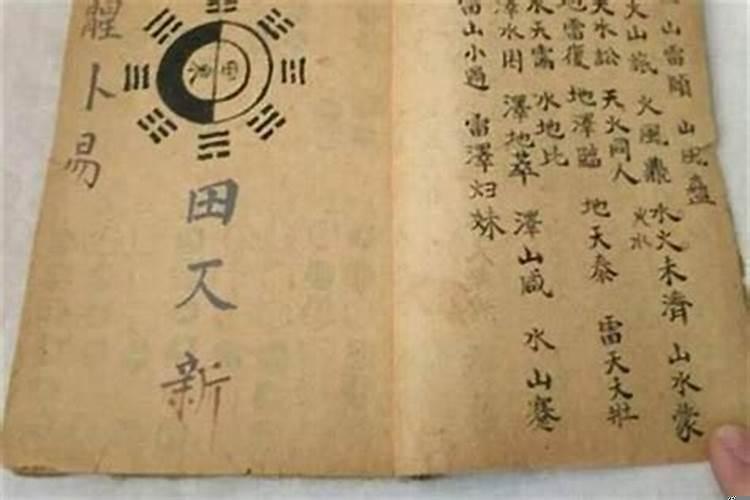 山雷頤 山風蠱
火山旅 火風鼎 火水
水火未濟 山水蒙
天水訟 天火同人
地天泰 雷天天壯
地雷復 地澤臨
水天需 水地比
澤水困 澤地萃 澤山咸 水山蹇
雷山小過 雷澤归妹
田 新
卜易